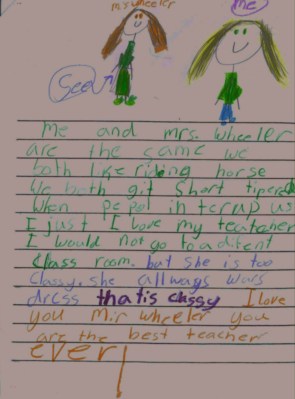 mrs wheeler
me
See
me and mrs. wheeler
are the same we
both like riding horse
We both git short tipered
When pepol interup us
I just I love my teatcher
I would not go to a ditent
class room. but she is too
classy. she allways wars
dress thatis classy I love
you mir wheeler you
are the best teacher
ever!